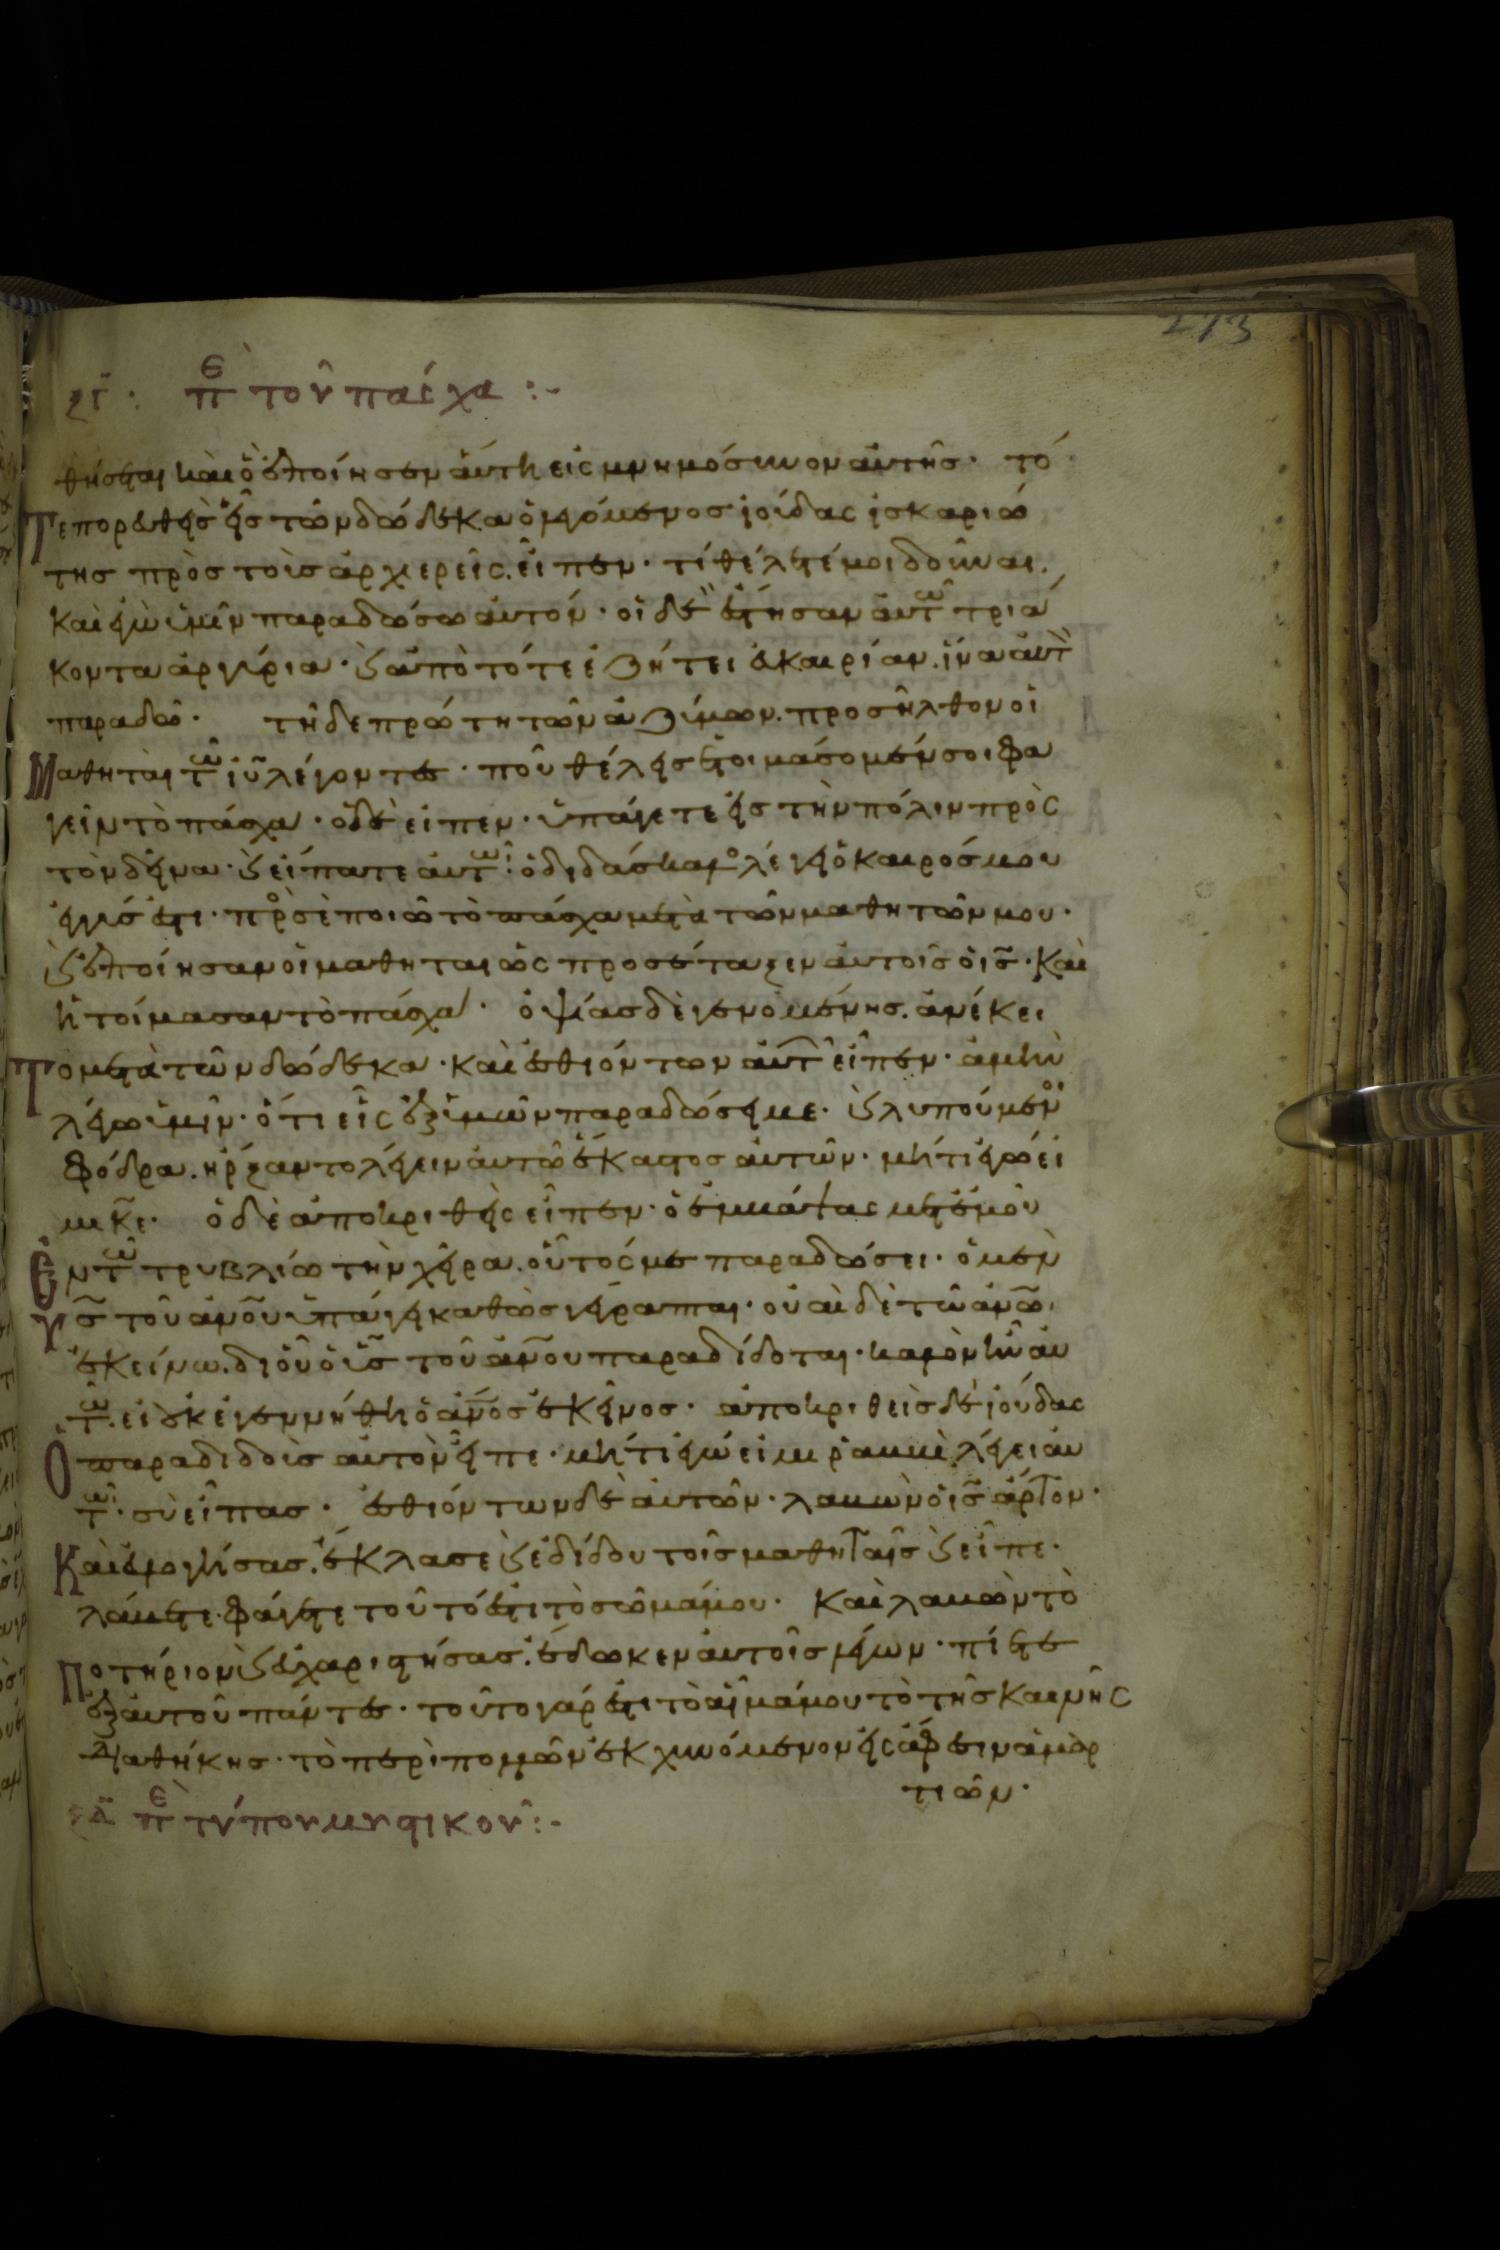 273
ξγ: πε τοῦ πάσχα :-
θήσεται καὶ ὃ ἐποίησεν αὕτη εἰς μνημόσυνον αὐτῆς· τό
τε πορευθεὶς εἷς τῶν δώδεκα ὁ λεγόμενος ἰούδας ἰσκαριώ
της πρὸς τοὺς ἀρχιερεῖς. εἶπεν· τί θέλετέ μοι δοῦναι.
κἀὶ ἐγὼ ὑμῖν παραδώσω αὐτόν· οἱ δὲ ἔστησαν αὐτῶ τριά
κοντα ἀργύρια· ϗ ἀπὸ τότε ἐζήτει εὐκαιρίαν. ἵνα αὐτὸν
παραδῶ· τῆ δε πρώτη τῶν ἀζύμων. προσῆλθον οἱ
μαθηταὶ τῶ ἰῦ λέγοντες· ποῦ θέλεις ἑτοιμάσομέν σοι φα
γεῖν τὸ πάσχα· ὁ δὲ εἶπεν· ὑπάγετε εἰς τὴν πόλιν πρὸς
τὸν δεῖνα· ϗ εἴπατε αὐτῶ· ὁ διδάσκαλος λέγει ὁ καιρός μου
ἐγγύς ἐστι· πρὸς σὲ ποιῶ τὸ πάσχα μετὰ τῶν μαθητῶν μου·
ϗ ἐποίησαν οἱ μαθηταὶ ὡς προσέταξεν αὐτοῖς ὁ ις· καὶ
ἡτοίμασαν τὸ πάσχα· ὀψίας δὲ γενομένης. ἀνέκει
το μετὰ τῶν δώδεκα· καὶ ἐσθιόντων αὐτῶν εἶπεν· ἀμὴν
λέγω ὑμῖν· ὅτι εἷς ἐξ ὑμῶν παραδώσει με· ϗ λυπούμενοι
σφόδρα. ἤρξαντο λέγειν αὐτῶ ἕκαστος αὐτῶν· μήτι ἐγώ εἰ
μι κε· ὁ δὲ ἀποκριθεὶς εἶπεν· ὁ ἐμβάψας μετ' ἐμοῦ
ἐν τῶ τρυβλίω τὴν χεῖρα. οὗτός με παραδώσει· ὁ μὲν
υς τοῦ ἀνου ὑπάγει καθὼς γέγραπται· οὐαὶ δὲ τῶ ἀνω
ἐκείνω. δι' οὗ ὁ υς τοῦ ἀνου παραδίδοται· καλὸν ἦν αὐ
τῶ. εἰ οὐκ ἐγεννήθη ὁ ἀνος ἐκεῖνος· ἀποκριθεὶς δὲ ἰούδας
ὁ παραδιδοὺς αὐτὸν εἶπε· μήτι ἐγώ εἰμι ῥαββὶ λέγει αὐ
τῶ· σὺ εἶπας· ἐσθιόντων δὲ αὐτῶν· λαβὼν ὁ ις ἄρτον·
καὶ εὐλογήσας. ἔκλασε ϗ ἐδίδου τοῖς μαθηταῖς ϗ εἶπε·
λάβετε φάγετε τοῦτό ἐστι τὸ σῶμά μου· καὶ λαβὼν τὸ
ποτήριον ϗ εὐχαριστήσας. ἔδωκεν αὐτοῖς λέγων· πίετε
ἐξ αὐτοῦ πάντες· τοῦτο γάρ ἐστι τὸ αἷμά μου τὸ τῆς καινῆς
διαθήκης· τὸ περὶ πολλῶν ἐκχυνόμενον εἰς ἄφεσιν ἁμαρ
τιῶν·
ξδ πε τύπου μυστικοῦ :-